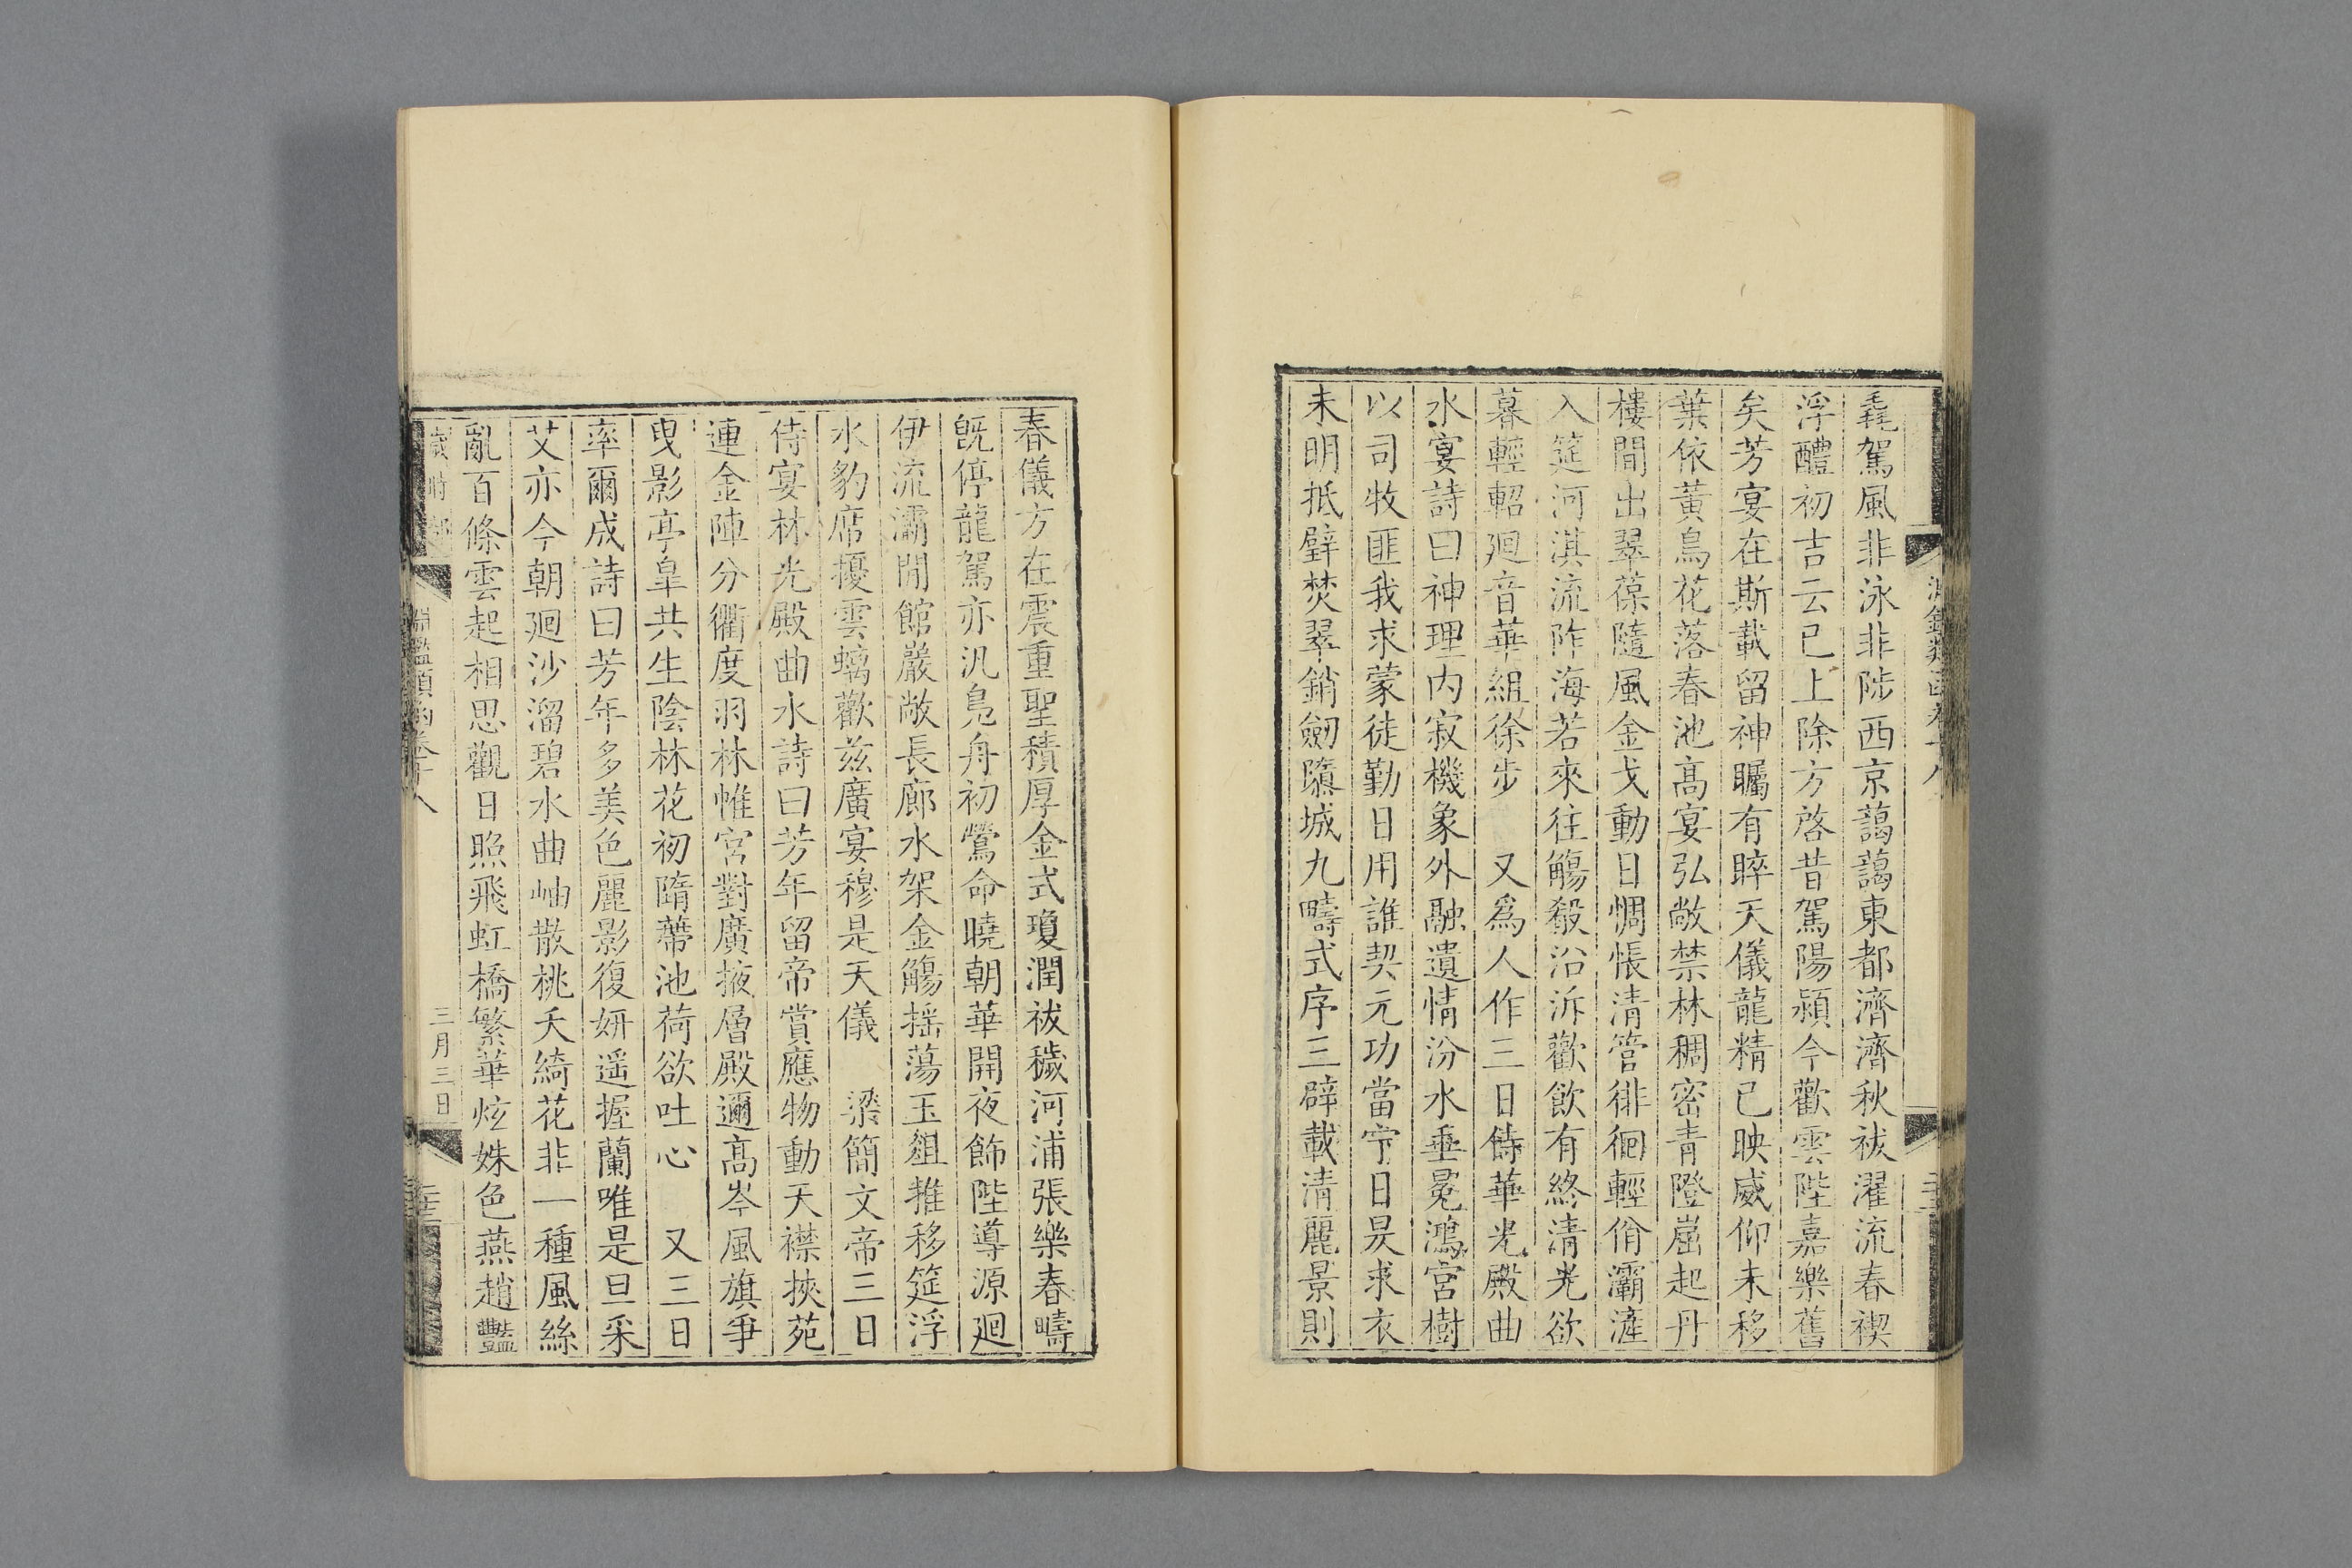 毳駕風非泳非陟西京藹藹東都濟濟秋祓濯流春禊
浮醴初吉云已上除方啓昔駕陽潁今歡雲陛嘉樂舊
矣芳宴在斯載留神矚有睟天儀龍精已映威仰未移
葉依黃鳥花落春池高宴弘敞禁林稠密青隥崫起丹
樓間出翠葆隨風金戈動日惆悵清管徘徊輕佾灞滻
入筵河淇流阼海若來往觴殽沿泝歡飲有終清光欲
暮輕軺廻音華組徐步　又爲人作三日侍華光殿曲
水宴詩曰神理內寂機象外融遺情汾水垂冕鴻宮樹
以司牧匪我求蒙徒勤日用誰契元功當宁日昃求衣
未明抵璧焚翠銷劒隳城九疇式序三辟載清麗景則
春儀方在震重聖積厚金式瓊潤祓穢河浦張樂春疇
旣停龍駕亦汎鳬舟初鶯命曉朝華開夜飾陛導源廻
伊流灞閒館巖敞長廊水架金觴摇蕩玉爼推移筵浮
水豹席擾雲螭歡兹廣宴穆是天儀　梁簡文帝三日
侍宴林光殿曲水詩曰芳年留帝賞應物動天襟挾苑
連金陣分衢度羽林帷宮對廣掖層殿邇高岑風旗爭
曳影亭皐共生陰林花初隋蔕池荷欲吐心　又三日
率爾成詩曰芳年多美色麗影復妍遥握蘭唯是旦采
艾亦今朝廻沙溜碧水曲岫散桃夭綺花非一種風絲
亂百條雲起相思觀日照飛虹橋繁華炫姝色燕趙豔
歲時部　淵鑑類函卷十八　三月三日